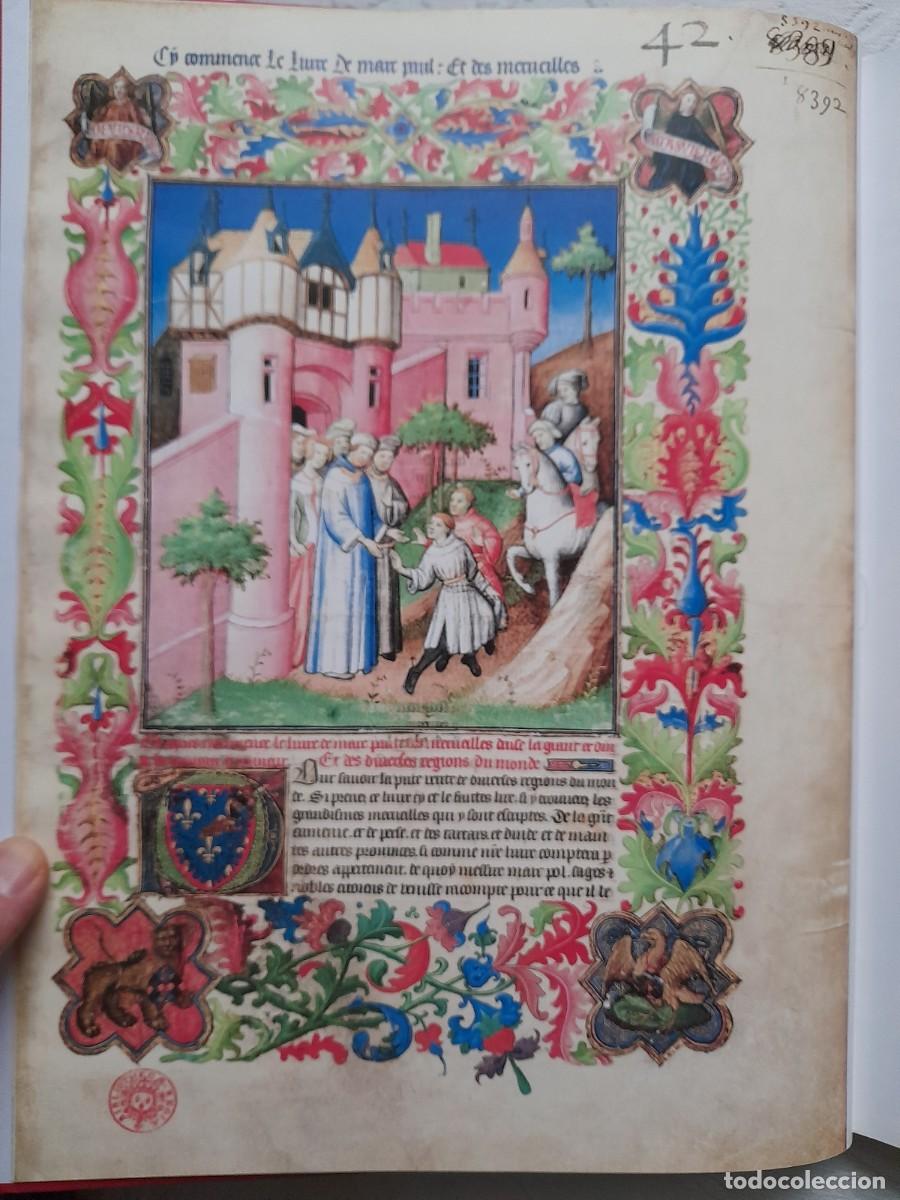 Cy commence le liure de marc paul : Et des merueilles
42.
8392
8392
liure de marc paul merueilles dasie la grant
Et des diuerses regions du monde
Pour sauoir la pure verite de diuerses regions du mon
de. Si prenez ce liure cy et le faictes lire, si y trouuerez les
grandismes merueilles qui y sont escriptes. De la grāt
ermenie, et de perse, et des tartars, et dinde et de maint
tes autres prouinces, si comme nr̄e liure comptera p
ordres appertement. de quoy messire marc pol. sages
nobles citoiens de venisse racompte pour ce que il le
todocoleccion